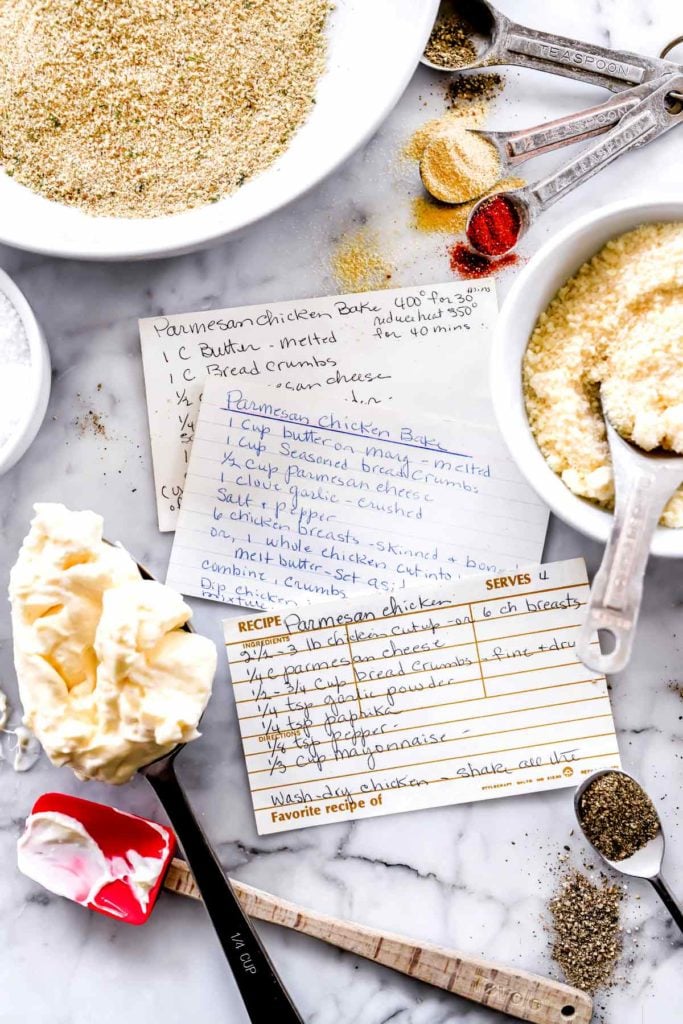 TEASPOON
Parmesan Chicken Bake 400° for 30 mins
reduce heat 350°
for 40 mins
1 C Butter - melted
1 C Bread Crumbs
1/2 can cheese
Parmesan Chicken Bake
1 cup butter or marg - melted
1 cup Seasoned bread crumbs
1/2 cup parmesan cheese
1 clove garlic - crushed
Salt & pepper
6 chicken breasts - skinned & bon
or, 1 whole chicken cut into
melt butter - Set asid
combine, crumbs
Dip chicken
mixture
RECIPE Parmesan chicken SERVES 4
INGREDIENTS
2 1/2 - 3 lb chicken cut up - or 6 ch breasts
1/4 c parmesan cheese
1/2 - 3/4 cup bread crumbs - fine & dry
1/4 tsp garlic powder
1/4 tsp paprika
DIRECTIONS
1/8 tsp pepper
1/3 cup mayonnaise
Wash - dry chicken - shake all the
Favorite recipe of
1/4 CUP